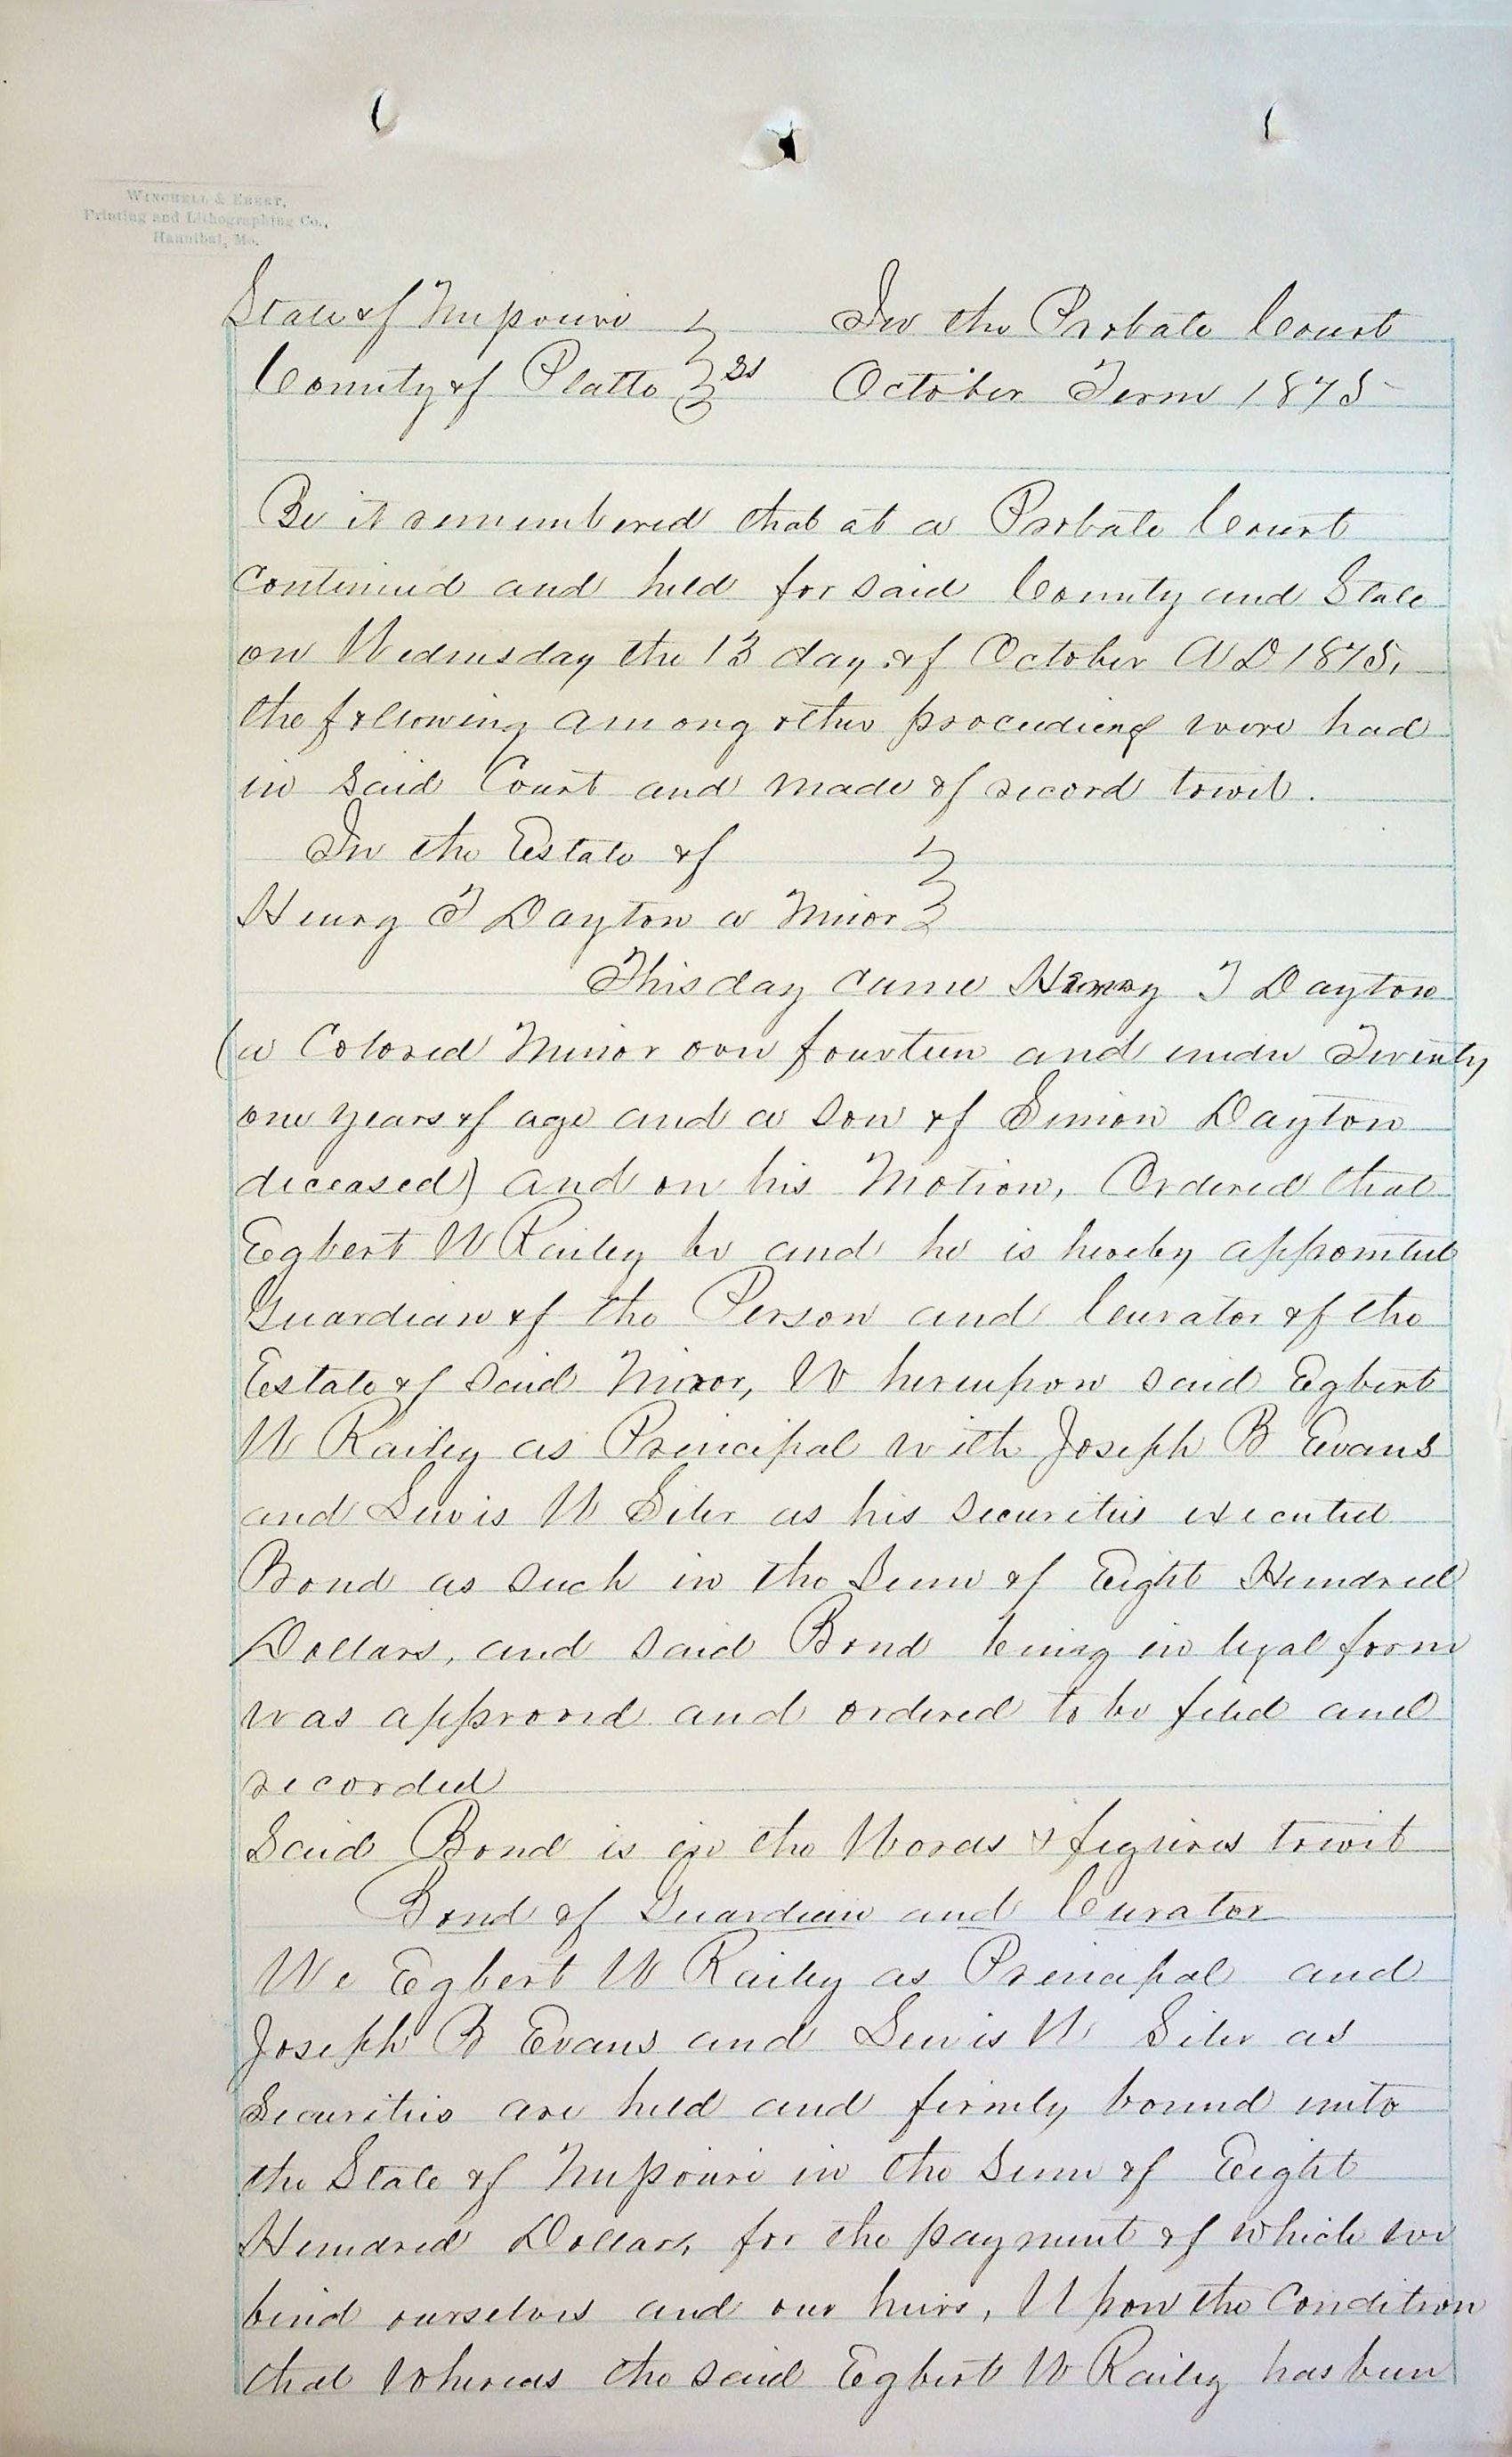 WINCHELL & EBERT,
Printing and Lithographing Co.,
Hannibal, Mo.
State of Missouri } In the Probate Court
County of Platte } ss October Term 1875
Be it remembered that at a Probate Court
Continued and held for said County and State
on Wednesday the 13 day of October AD 1875,
the following among other proceedings were had
in said Court and made of record towit.
In the Estate of }
Henry T Dayton a Minor }
This day came Henry T Dayton
(a Colored Minor over fourteen and under Twenty
one years of age and a son of Simon Dayton
deceased) and on his Motion, Ordered that
Egbert W Railey be and he is hereby appointed
Guardian of the Person and Curator of the
Estate of said Minor, Whereupon said Egbert
W Railey as Principal with Joseph B Evans
and Lewis W Siler as his securities executed
Bond as such in the Sum of Eight Hundred
Dollars, and said Bond being in legal form
was approved and ordered to be filed and
recorded
Said Bond is in the Words & figures towit
Bond of Guardian and Curator
We Egbert W Railey as Principal and
Joseph B Evans and Lewis W Siler as
Securities are held and firmly bound unto
the State of Missouri in the Sum of Eight
Hundred Dollars, for the payment of which we
bind ourselves and our heirs, Upon the Condition
that Whereas the said Egbert W Railey has been